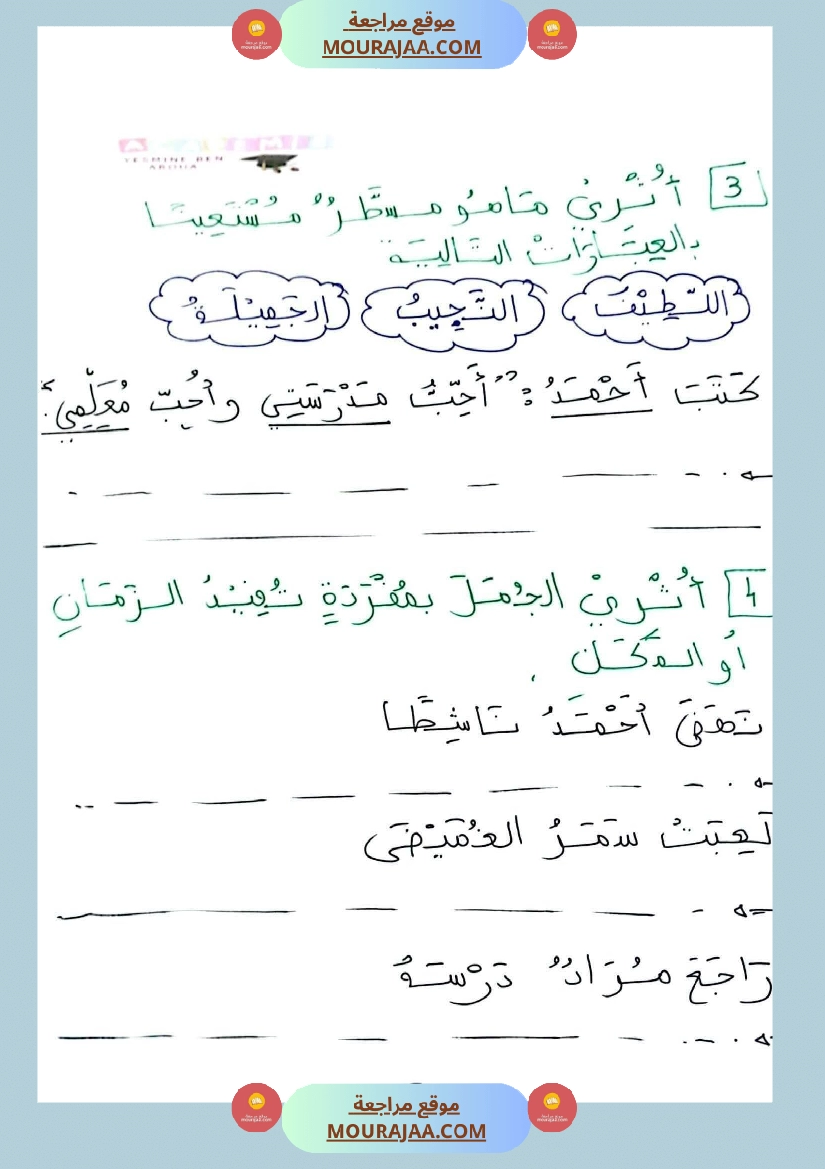 موقع مراجعة
MOURAJAA.COM
YESMINE BEN
3 أُثْرِيْ مَاهُوَ مسطَّرٌ مُسْتَعِينًا
بِالعِبَارَاتْ التَالِيَة
اللَّطِيْفُ النَّجِيبُ الجَمِيْلَةُ
كَتَبَ أَحْمَدُ: "أُحِبُّ مَدْرَسَتِي وأُحِبّ مُعَلِّمِي".
4 أُثْرِيْ الجُمَلَ بِمُفْرَدَةٍ تُفِيْدُ الزَمَانِ
أو المَكَان
نَهَضَ أَحْمَدُ نَاشِطًا
لَعِبَتْ سَمَرُ الغُمَيْضَى
رَاجَعَ مُرَادٌ دَرْسَهُ
موقع مراجعة
MOURAJAA.COM